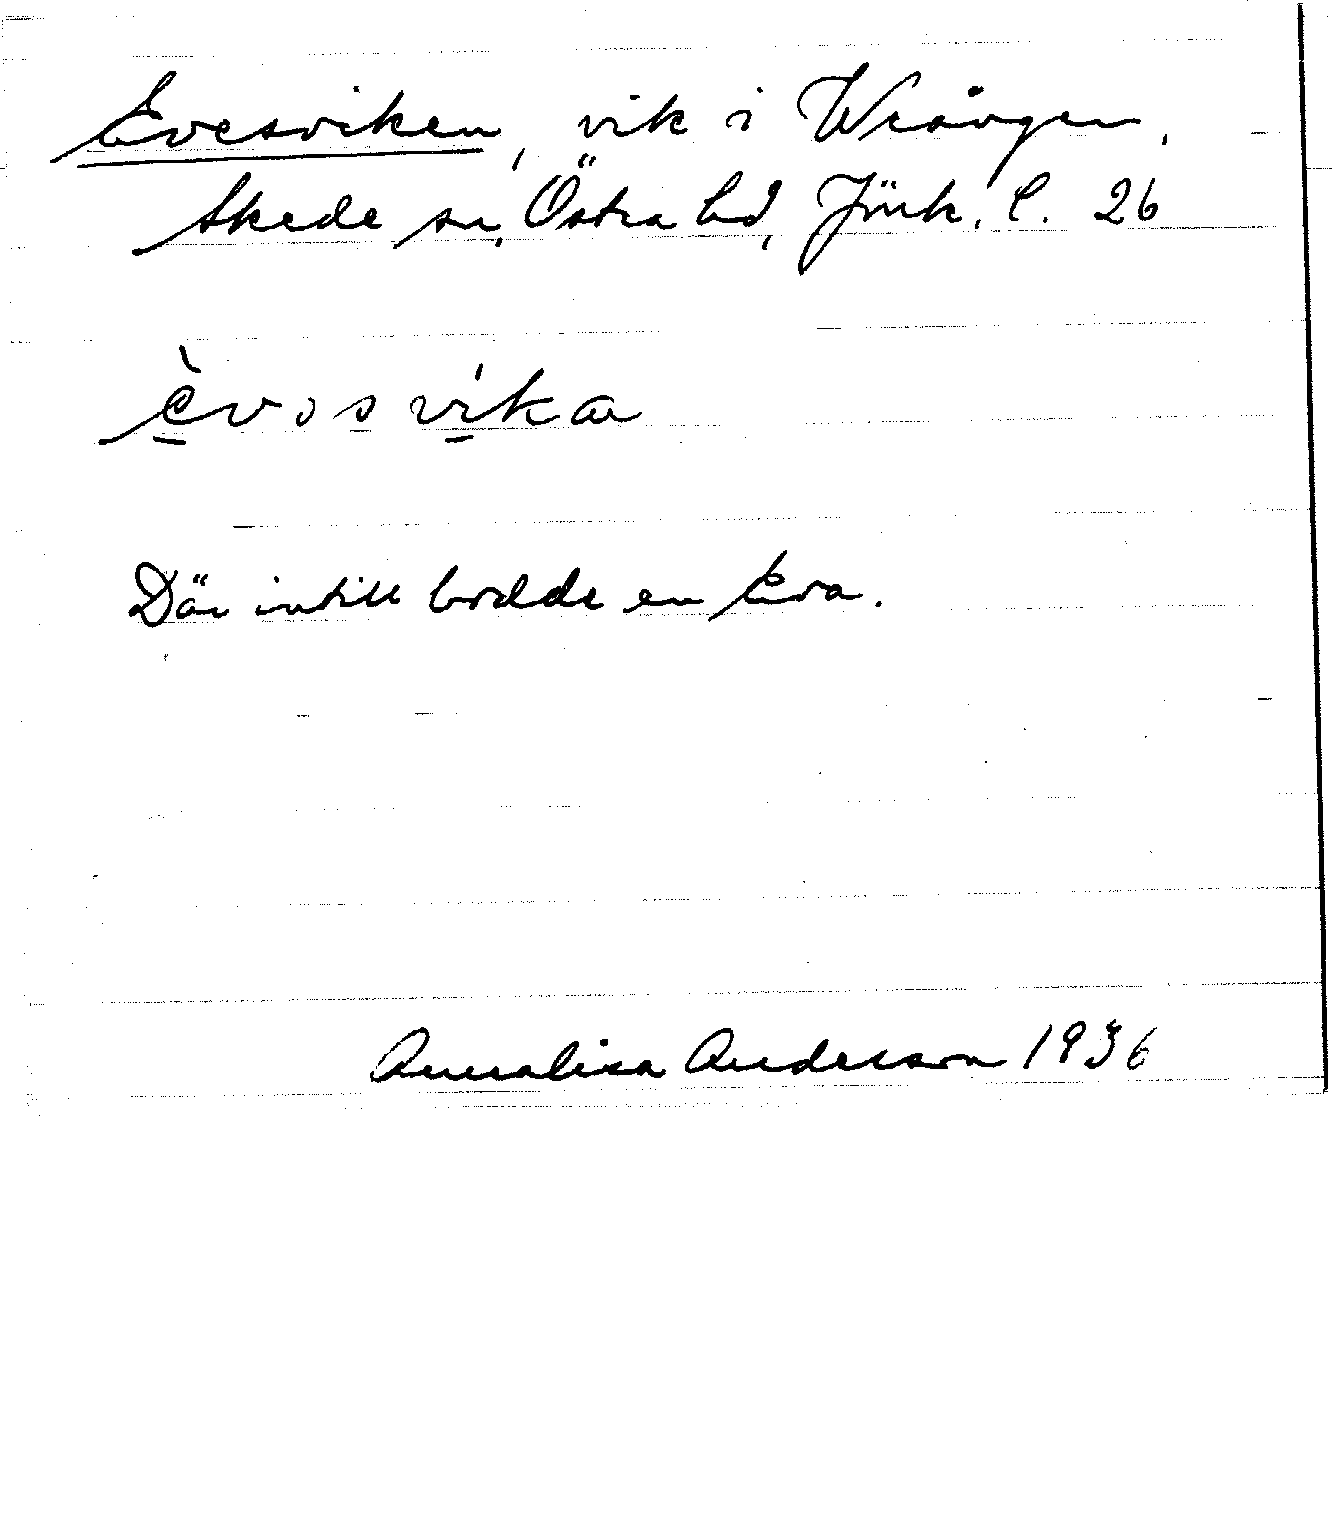 Evesviken, vik i Wrången,
Skede sn, Östra hd, Jönk. l. 26
èvɔsvíka
Där intill bodde en Eva.
Annalisa Anderson 1936